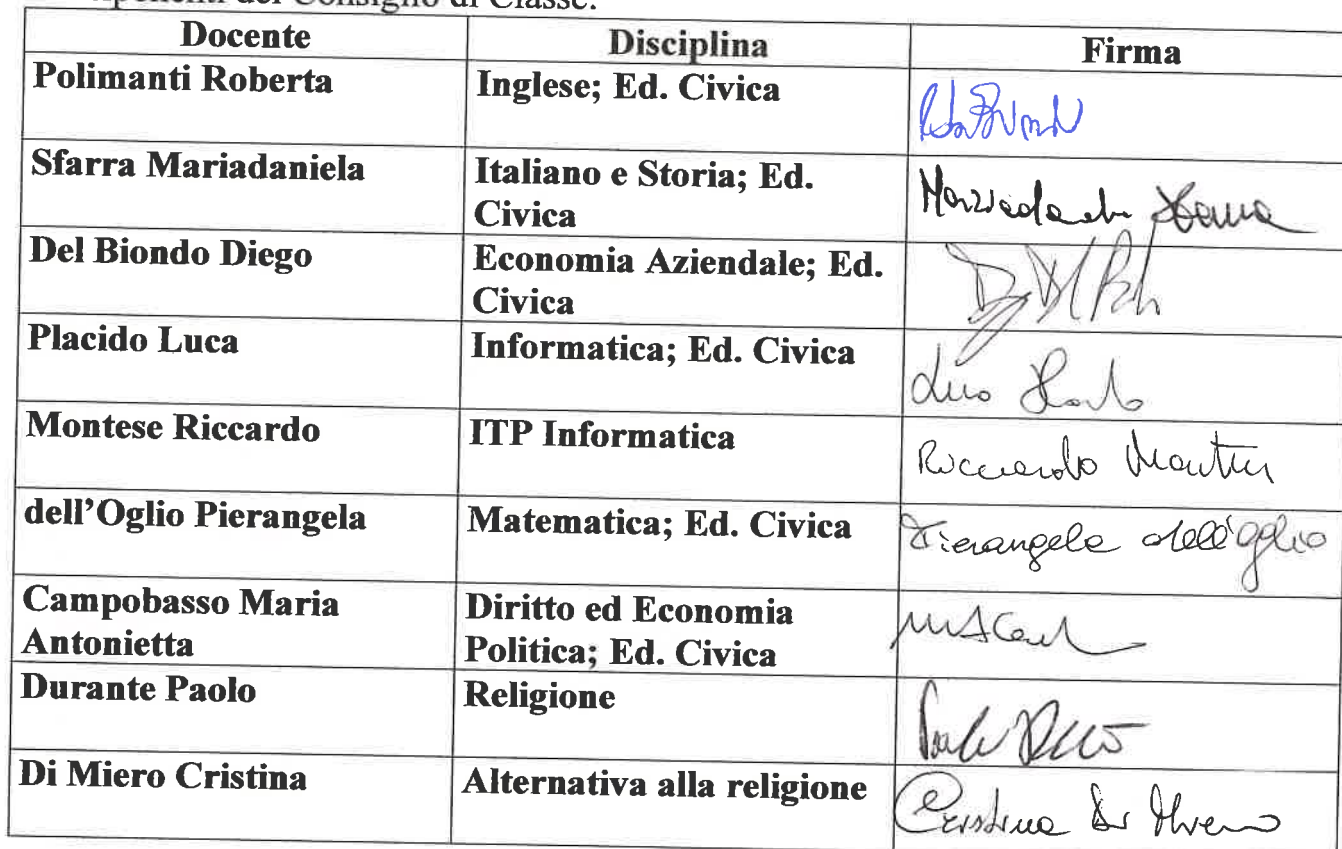 del Consiglio di Classe:
Docente Disciplina Firma
Polimanti Roberta Inglese; Ed. Civica
Sfarra Mariadaniela Italiano e Storia; Ed. Civica
Del Biondo Diego Economia Aziendale; Ed. Civica
Placido Luca Informatica; Ed. Civica
Montese Riccardo ITP Informatica Riccardo
dell'Oglio Pierangela Matematica; Ed. Civica Pierangela dell'Oglio
Campobasso Maria Antonietta Diritto ed Economia Politica; Ed. Civica
Durante Paolo Religione
Di Miero Cristina Alternativa alla religione Cristina Di Miero